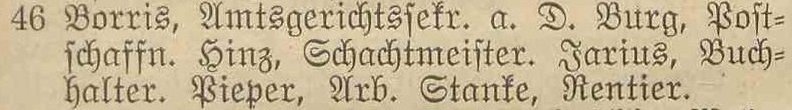 46 Borris, Amtsgerichtssekr. a. D. Burg, Post-
schaffn. Hinz, Schachtmeister. Jarius, Buch-
halter. Pieper, Arb. Stanke, Rentier.